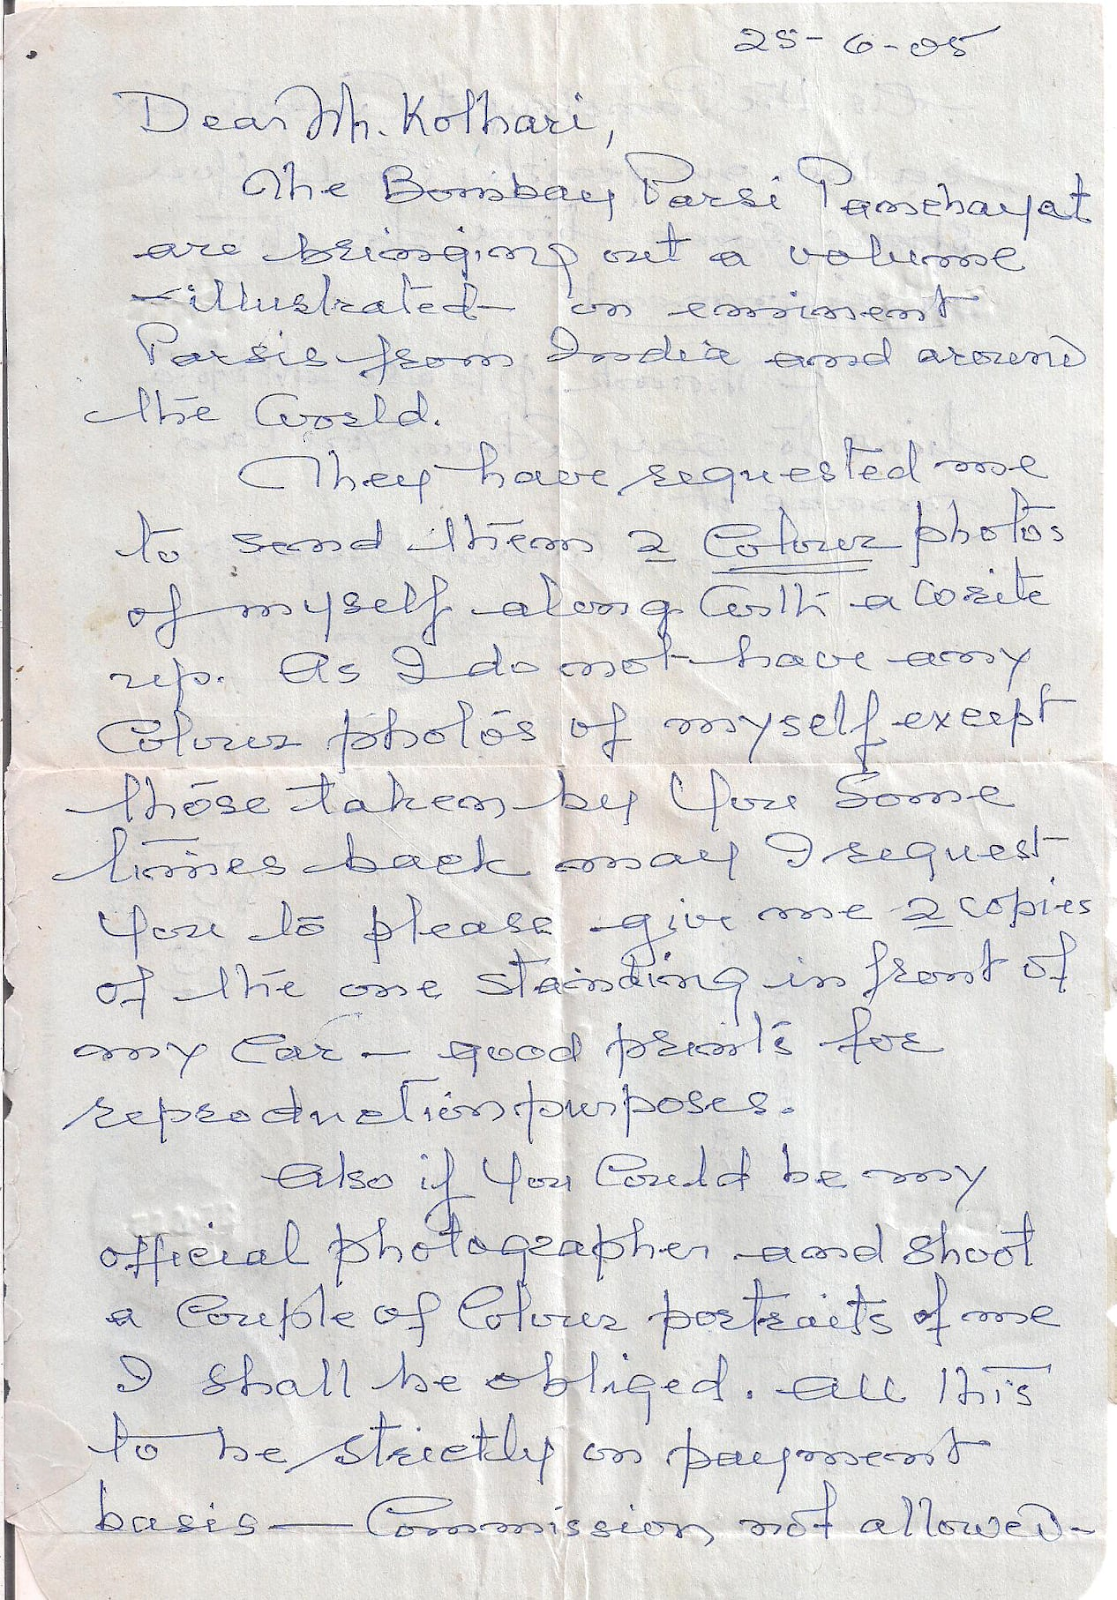 25-6-05
Dear Mr. Kothari,
The Bombay Parsi Panchayat
are bringing out a volume
- illustrated - on eminent
Parsis from India and around
the world.
They have requested me
to send them 2 colour photos
of myself along with a write
up. As I do not have any
colour photos of myself except
those taken by you some
times back may I request
you to please give me 2 copies
of the one standing in front of
my car - good prints for
reproduction purposes.
Also if you could be my
official photographer and shoot
a couple of colour portraits of me
I shall be obliged. All this
to be strictly on payment
basis — Commission not allowed -